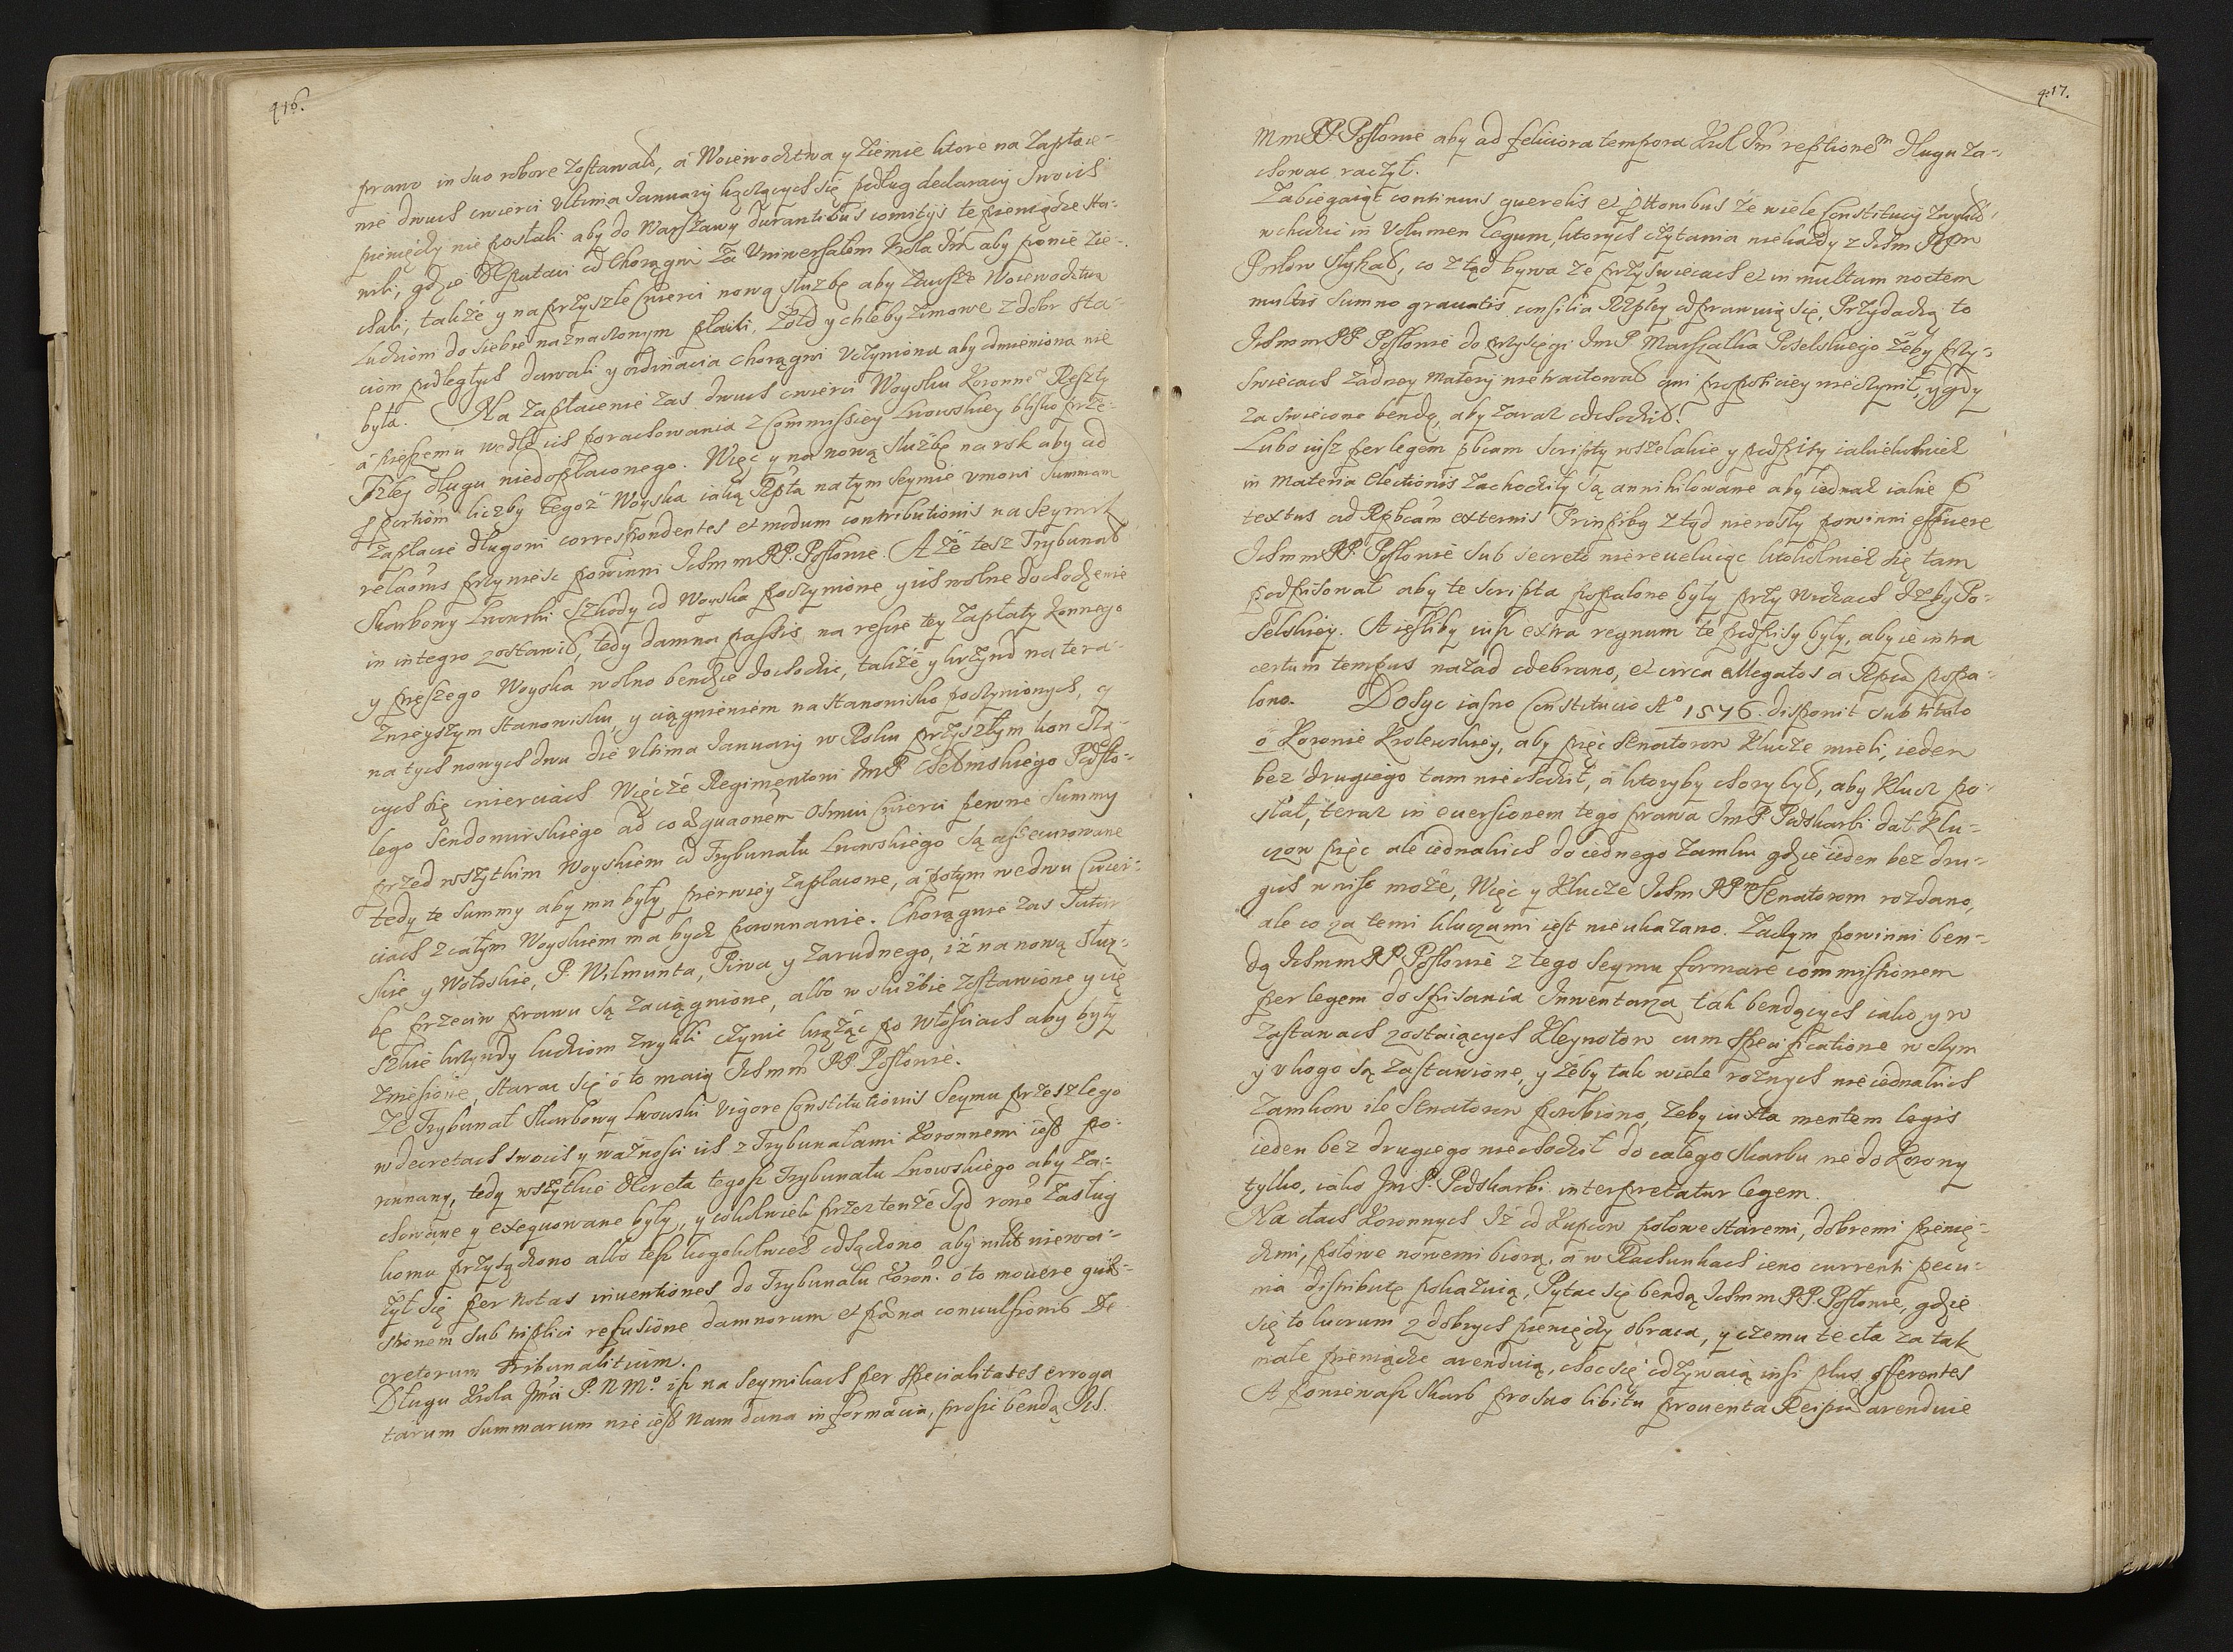 416.
prawo in suo robore zostawało, á Woiewodztwa y Ziemie ktore na Zapłace-
nie dwuch cwierci ultima Januarij kączących się podług declaracij Swoich
pieniędzy nie posłali aby do Warszawy durantibus comitijs te pieniądze sta-
wili, gdzie Deputaci od Chorągwi Za Uniwersałem Krola Jm aby ponie Zie-
chali, także y na przyszłe Cwierci nową służbę aby Zawsze Woiewodztwa
Ludziom do siebie naznaczonym płacili, Żołd y chleby zimowe z dobr sta-
ciom podległych dawali y ordinacia chorągwi Uczyniona aby odmieniona nie
była. Na Zapłacenie zas dwuch cwierci Woysku Koronne° Reszty
á pieszemu wedle ich porachowania z Commissiey Lwowskiey blisko prze-
szłey długu niedopłaconego. Więc y na nową służbę na rok aby ad
pportiom liczby tegoż Woyska iaką Rpta na tym seymie umowi Summam
zapłacie długowi correspondentes et modum contributionis na Seymik
relaonis przyniesc powinni Ichmm PP. Posłowie. A że tesz Trybunał
Skarbowy Lwowski Szkody od Woyska poczynione y ich wolne dochodzenie
in integro zostawił, tedy damna passis na resie tey Zapłaty konnego
y pieszego Woyska wolno bendzie dochodzic, także y krzywd na tera-
znieyszym Stanowisku, y ciągnieniem na stanowisko poczynionych, y
na tych nowych dwu die ultima Januarij w Roku przyszłym kon Ną-
cych się cwierciach. Więc że Regimentowi JmP Chełmskiego Podsto-
lego Sendomirskiego ad coæquaonem Osmiu Cwierci pewne Summy
przed wszytkim Woyskiem od Trybunału Lwowskiego są assecurowane
tedy te Summy aby mu były pierwiey zapłacone, á potym we dwu Cwier-
ciach z całym Woyskiem ma bydz porownanie. Chorągwie zas Tatar
skie y Wołoskie, P. Wilmunta, Piwa y Zarudnego, iż na nową służ-
bę przeciw prawu są zaciągnione, albo w służbie zostawione y cię
szkie krzywdy ludziom zwykli czynic krążąc po włosciach aby były
zniesione, starac się o to maią Ichmm PP. Posłowie.
Ze Trybunał Skarbowy Lwowski vigore Constitutionis Seymu przeszłego
w decretach swoich y ważnosci ich z Trybunałami Koronnemi iest po-
rownany, tedy wszytkie Decreta tegosz Trybunału Lwowskiego aby za-
chowane y exequowane były, y cokolwiek przez tenże Sąd rone Zasług
komu przysądzono albo tesz kogokolwiek odsądzono aby nikt niewa-
żył się per notas inventiones do Trybunału Koron: o to movere quæ-
stionem sub triplici refusione damnorum et pœna convulsionis De
cretorum Tribunalitium.
Długu Krola Jmci P. N. M°. isz na Seymikach per specialitates erroga
tarum Summarum nie iest nam dana informacia, prosic bendą Ich.
417.
MmPP. Posłowie aby ad feliciora tempora Krol Jm repetitionem długu za-
chowac raczył.
Zabiegaiąc continuis querelis et Ꝓttonibus że wiele Constitucij zwykło
wchodzic in Volumen legum, ktorych czytania niekażdy z Ichm PPow
Posłow słyszał, co z tąd bywa że przy swiecach et in multam noctem
multis Somno gravatis consilia Rzptey odprawuią się, Przydadzą to
Ichmm PP Posłowie do przysięgi JmP Marszałka Poselskiego żeby przy-
swiecach żadney materij nietractował ani propositiey nieczynił, y gdy
zaswiecone bendą, aby zaraz odchodził.
Lubo iusz per legem pbcam scripty wszelakie y podpisy iakiekolwiek
in materia Electionis zachodziły są annihilowane aby iednak iakie p
textus ad Rpbcam externis Principibq z tąd nierosły powinni efficere
Ichmm PP. Posłowie sub secreto niereveluiąc ktokolwiek się tam
podpisował aby te scripta popalone były przy Wodzach Izby Po-
selskiey. A iesliby iusz extra regnum te podpisy były, aby ie intra
certum tempus nazad odebrano, et circa ablegatos a Rpca popa-
lono. Dosyc iasno Constitucio A° 1576. disponit sub titulo
o Koronie Krolewskiey, aby pięc Senatorow klucze mieli, ieden
bez drugiego tam niechodził, á ktoryby chory był, aby klucz po-
słał, teraz in eversionem tego prawa JmP Podskarbi dał klu-
czow pięc ale iednakich do iednego zamku gdzie ieden bez dru-
gich wniść może, Więc y Klucze Ichm PPm Senatorom rozdano,
ale co za temi kluczami iest nie ukazano. Zaczym powinni ben-
dą IchmmPP Posłowie z tego Seymu formare commissionem
per legem do spisania Inwentarza tak bendących iako y w
zastawach zostaiących kleynotow cum specificatione w czym
y u kogo są zastawione, y żeby tak wiele roznych nieiednakich
Zamkow ile Senatorow porobiono, żeby iuxta mentem legis
ieden bez drugiego niechodził do całego skarbu nie do Korony
tylko, iako JmP. Podskarbi interpretatur legem.
Na cłach Koronnych Iż od Kupcow połowe staremi, dobremi pienię-
dzmi, połowe nowemi biorą, á w Rachunkach ieno currenti pecu-
nia distributę pokazuią, Pytac się bendą Ichmm PP. Posłowie, gdzie
się to lucrum z dobrych pieniędzy obraca, y czemu te cła za tak
małe pieniądze arenduią, choc się odzywaią insi plus offerentes
A ponieważ skarb pro suo libitu proventa Reipcæ arenduie